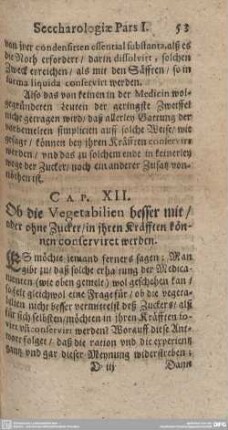 Saccharologiæ Pars I. 53
von jrer condensirten essential substantz, als es
die Noth erfordert / darin dissolvirt / solchen
Zweck erreichen / als mit den Säfften / so in
forma liquida conservirt werden.
Also das von keinen in der Medicin wol-
gegründeten Leuten der geringste Zweiffel
nicht getragen wird / daß allerley Gattung der
vorbemelten simplicien auff solche Weise / wie
gesagt / können bey jhren Kräfften conserviret
werden / und das zu solchem ende in keinerley
wege der Zucker / noch ein anderer Zusatz von-
nöthen ist.
CAP. XII.
Ob die Vegetabilien besser mit /
oder ohne Zucker / in jhren Kräfften kön-
nen conserviret werden.
ES möchte jemand ferners sagen: Man
gibt zu daß solche erhaltung der Medica-
menten (wie oben gemelt) wol geschehen kan /
so ist gleichwol eine Frage für / ob die vegeta-
bilien nicht besser vermittelst deß Zuckers / als
für sich selbsten / möchten in jhren Kräfften
conserviret werden? Worauff diese Ant-
wort folget / daß die ration und die experientz
gantz und gar dieser Meynung widerstreben:
D iij Dann